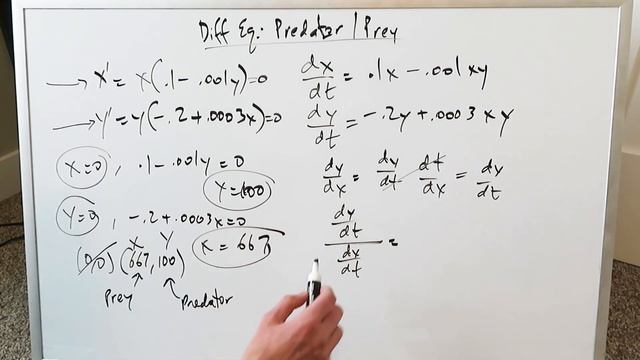 Diff Eq: Predator / Prey
→ X' = X(.1 - .001y) = 0
→ Y' = Y(-.2 + .0003x) = 0
X=0, .1 - .001y = 0
Y=100
Y=0, -.2 + .0003x = 0
X = 667
X Y
(0,0) (667, 100)
Prey Predator
dx/dt = .1x - .001xy
dy/dt = -.2y + .0003xy
dy/dx = dy/dt dt/dx = dy/dt
dy/dt / dx/dt =